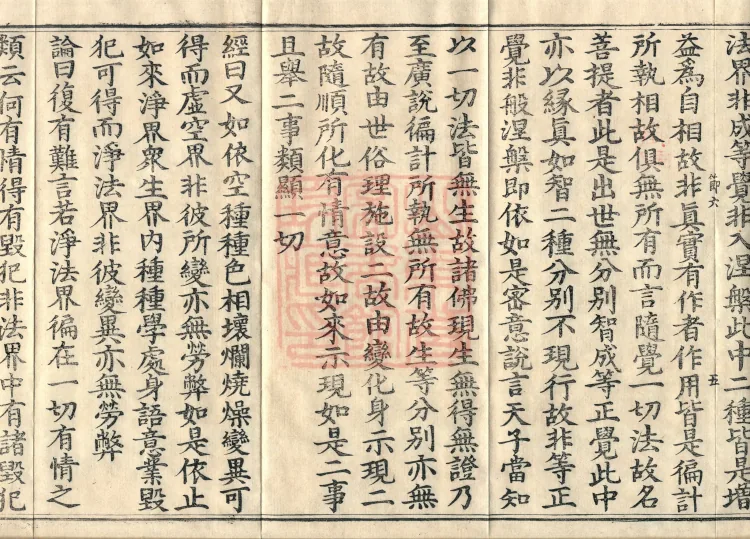 法界非成等覺非入涅槃此中二種皆是増
益爲自相故非眞實有作者作用皆是徧計
所執相故俱無所有而言隨覺一切法故名
菩提者此是出世無分別智成等正覺此中
亦以縁眞如智二種分別不現行故非等正
覺非般涅槃即依如是密意說言天子當知
以一切法皆無生故諸佛現生無得無證乃
至廣說徧計所執無所有故生等分別亦無
有故由世俗理施設二故由變化身示現二
故隨順所化有情意故如來示現如是二事
且舉二事類顯一切
經曰又如依空種種色相壞爛燒燥變異可
得而虛空界非彼所變亦無勞弊如是依止
如來淨界衆生界内種種學處身語意業毀
犯可得而淨法界非彼變異亦無勞弊
論曰復有難言若淨法界徧在一切有情之
類云何有情得有毀犯非法界中有諸毀犯
五